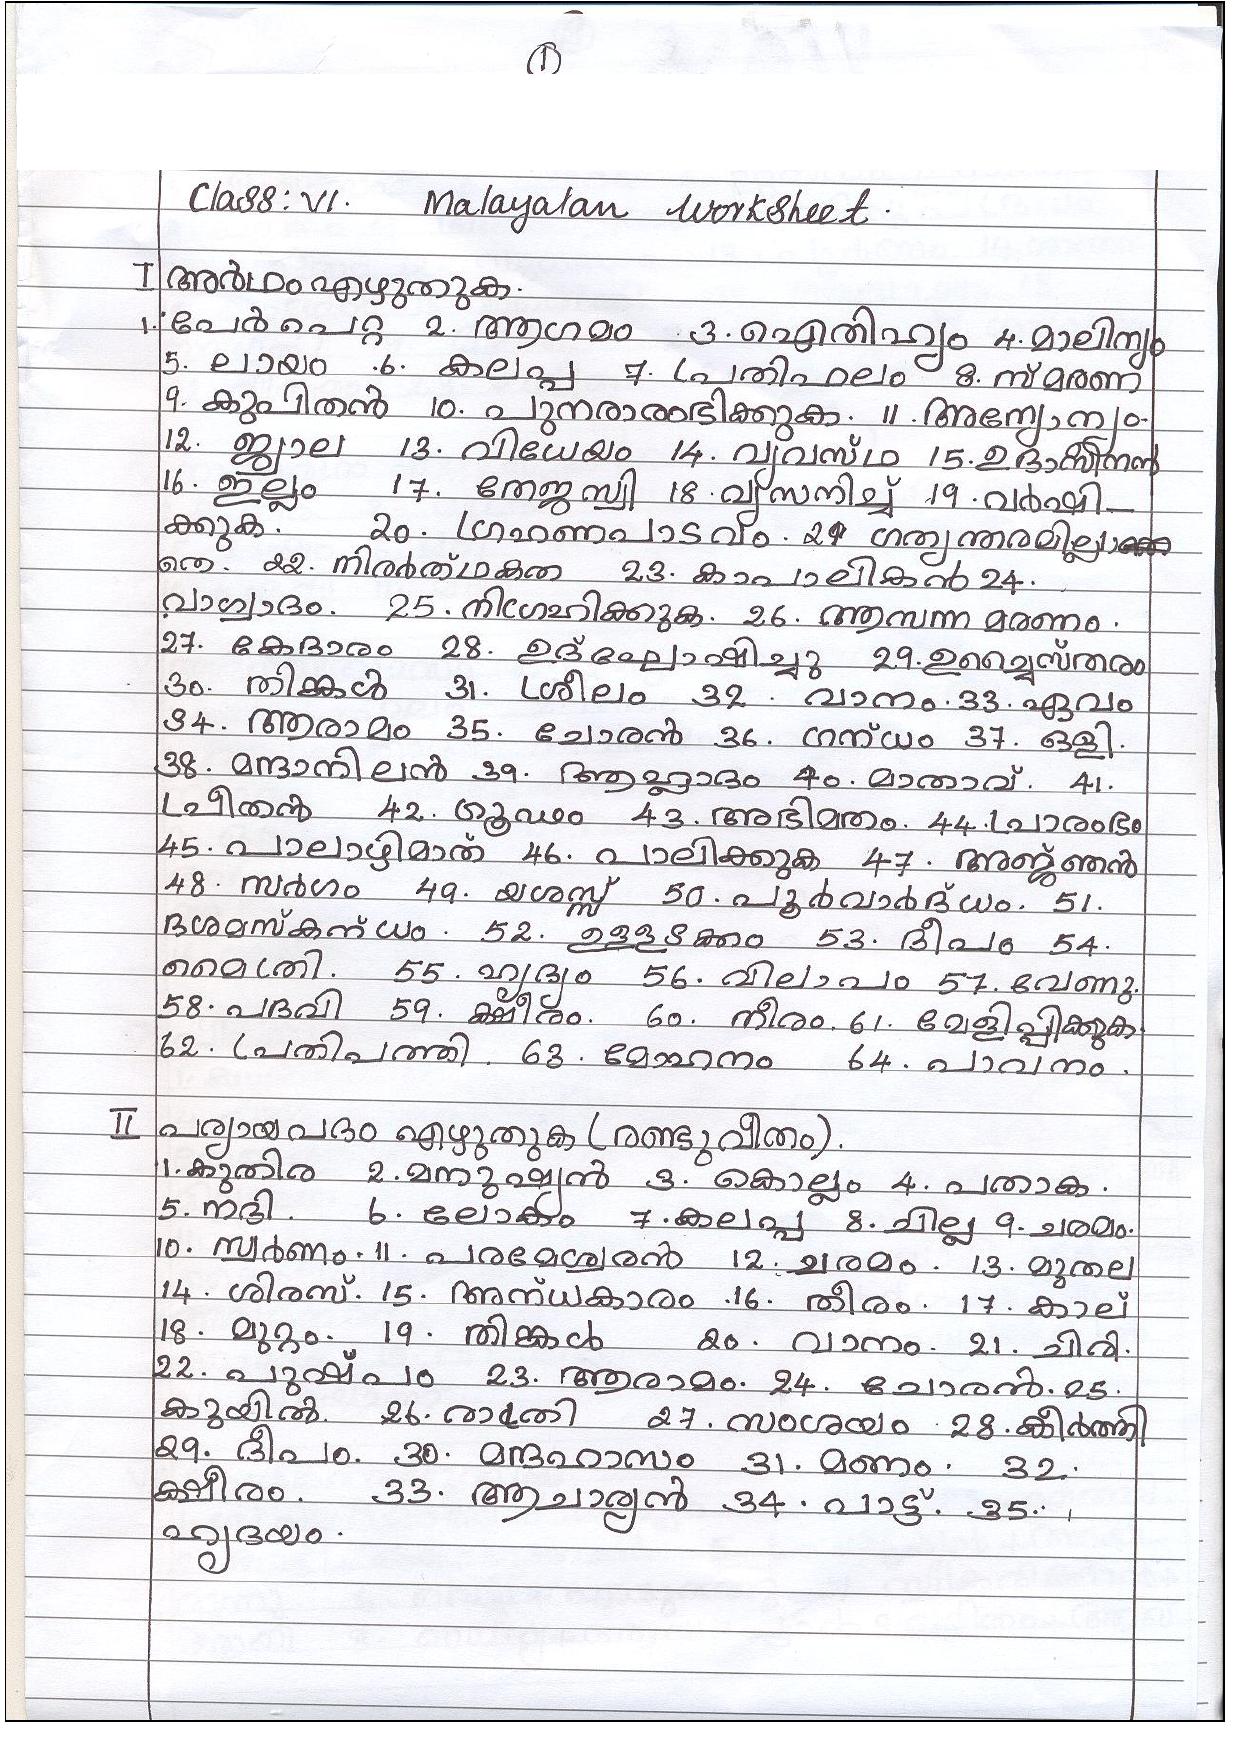 1
Class: VI. Malayalam Worksheet.
I അർഥം എഴുതുക.
1. പേർപെറ്റ 2. ആഗമം 3. ഐതിഹ്യം 4. മാലിന്യം
5. ലായം 6. കലപ്പ 7. പ്രതിഫലം 8. സ്മരണ
9. കുപിതൻ 10. പുനരാരംഭിക്കുക. 11. അന്യോന്യം.
12. ജ്വാല 13. വിധേയം 14. വ്യവസ്ഥ 15. ഉദാസീനൻ
16. ഇല്ലം 17. തേജസ്വി 18. വ്യസനിച്ച് 19. വർഷി–
ക്കുക. 20. ഗ്രഹണപാടവം. 21 ഗത്യന്തരമില്ലാ
തെ. 22. നിരർത്ഥകത 23. കാപാലികൻ 24.
വാഗ്വാദം. 25. നിഗ്രഹിക്കുക. 26. ആസന്നമരണം.
27. കേദാരം 28. ഉദ്ഘോഷിച്ചു 29. ഉച്ചൈസ്തരം
30. തിങ്കൾ 31. ശ്രീലം 32. വാനം. 33. ഏവം
34. ആരാമം 35. ചോരൻ 36. ഗന്ധം 37. ഒളി.
38. മന്ദാനിലൻ 39. ആഹ്ലാദം 40. മാതാവ്. 41.
പ്രീതൻ 42. ഗൂഢം 43. അഭിമതം. 44. പ്രാരംഭം
45. പാലാഴിമാത് 46. പാലിക്കുക 47. അജ്ഞൻ
48. സർഗം 49. യശസ്സ് 50. പൂർവാർദ്ധം. 51.
ദശമസ്കന്ധം. 52. ഉള്ളടക്കം 53. ദീപം 54.
മൈത്രി. 55. ഹൃദ്യം 56. വിലാപം 57. വേണു.
58. പദവി 59. ക്ഷീരം. 60. നീരം. 61. വേളിപ്പിക്കുക
62. പ്രതിപത്തി. 63. മോഹനം 64. പാവനം.
II പര്യായപദം എഴുതുക (രണ്ടുവീതം).
1. കുതിര 2. മനുഷ്യൻ 3. കൊല്ലം 4. പതാക.
5. നദി. 6. ലോകം 7. കലപ്പ 8. ചില്ല 9. ചരമം.
10. സ്വർണം. 11. പരമേശ്വരൻ 12. ചരമം. 13. മുതല
14. ശിരസ്. 15. അന്ധകാരം. 16. തീരം. 17. കാല്
18. മുറ്റം. 19. തിങ്കൾ 20. വാനം. 21. ചിരി.
22. പുഷ്പം 23. ആരാമം. 24. ചോരൻ. 25.
കുയിൽ. 26. രാത്രി 27. സംശയം 28. കീർത്തി
29. ദീപം. 30. മന്ദഹാസം 31. മണം. 32.
ക്ഷീരം. 33. ആചാര്യൻ 34. പാട്ട്. 35.
ഹൃദയം.